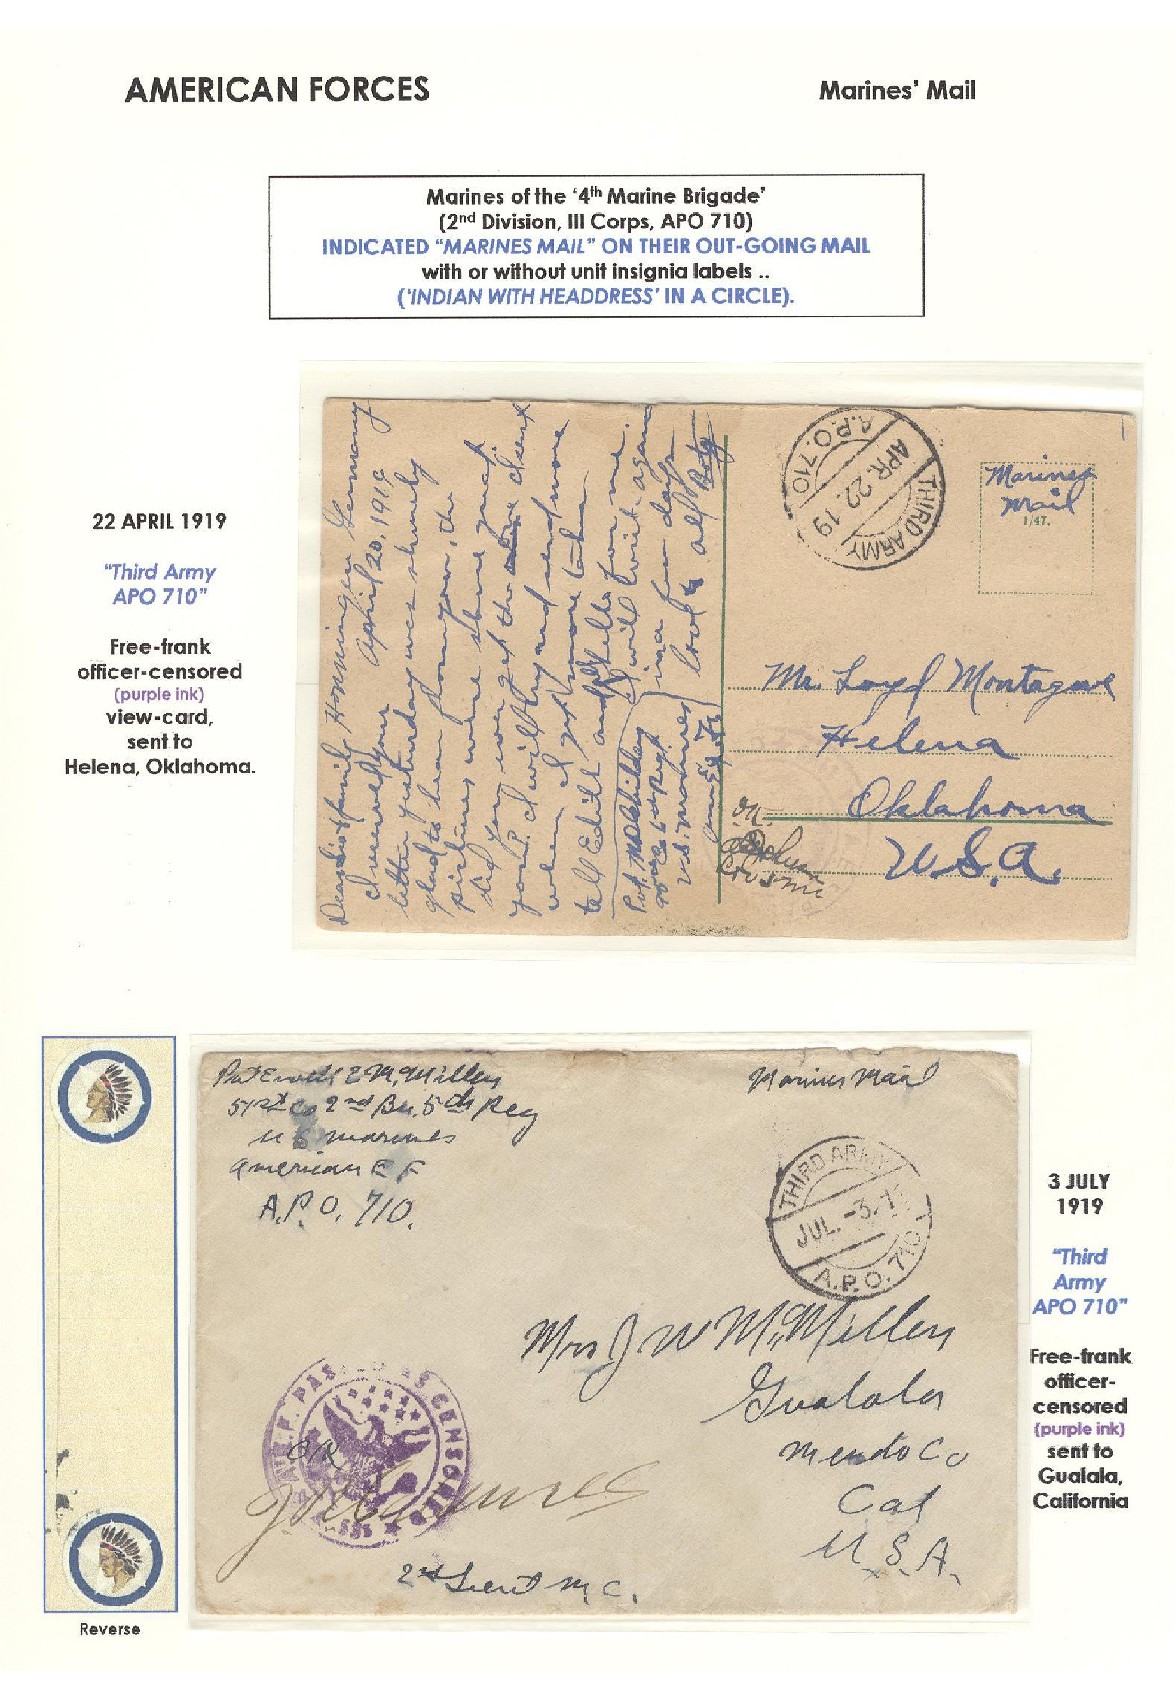 AMERICAN FORCES
Marines' Mail
Marines of the ‘4th Marine Brigade’
(2nd Division, III Corps, APO 710)
INDICATED “MARINES MAIL” ON THEIR OUT-GOING MAIL
with or without unit insignia labels ..
(‘INDIAN WITH HEADDRESS’ IN A CIRCLE).
22 APRIL 1919
"Third Army
APO 710"
Free-frank
officer-censored
(purple ink)
view-card,
sent to
Helena, Oklahoma.
Honningen Germany
April 20, 1919
letter yesterday was
glad to hear from you, the
pictures were
did you ever get the one I sent
you. I will try and send more
when I get more taken
tell Edith and hello for me.
I will write again
in a few days
love to all
U.S. Marines
THIRD ARMY
APR. 22. 19
A.P.O. 710
Marines
Mail
1/47.
Mr. Loyd Montague
Helena
Oklahoma
U.S.A.
O.K.
Pvt E M. Millen
51st Co 2nd Bn. 5th Reg
U S marines
American E F
A.P.O. 710.
Marines Mail
THIRD ARMY
JUL. -3. 1
A.P.O. 710
Mrs J W McMillen
Gualala
Mendo Co
Cal
U.S.A.
A.E.F. PASSED AS CENSORED
OK
2nd Lieut M.C.
3 JULY
1919
"Third
Army
APO 710"
Free-frank
officer-
censored
(purple ink)
sent to
Gualala,
California
Reverse